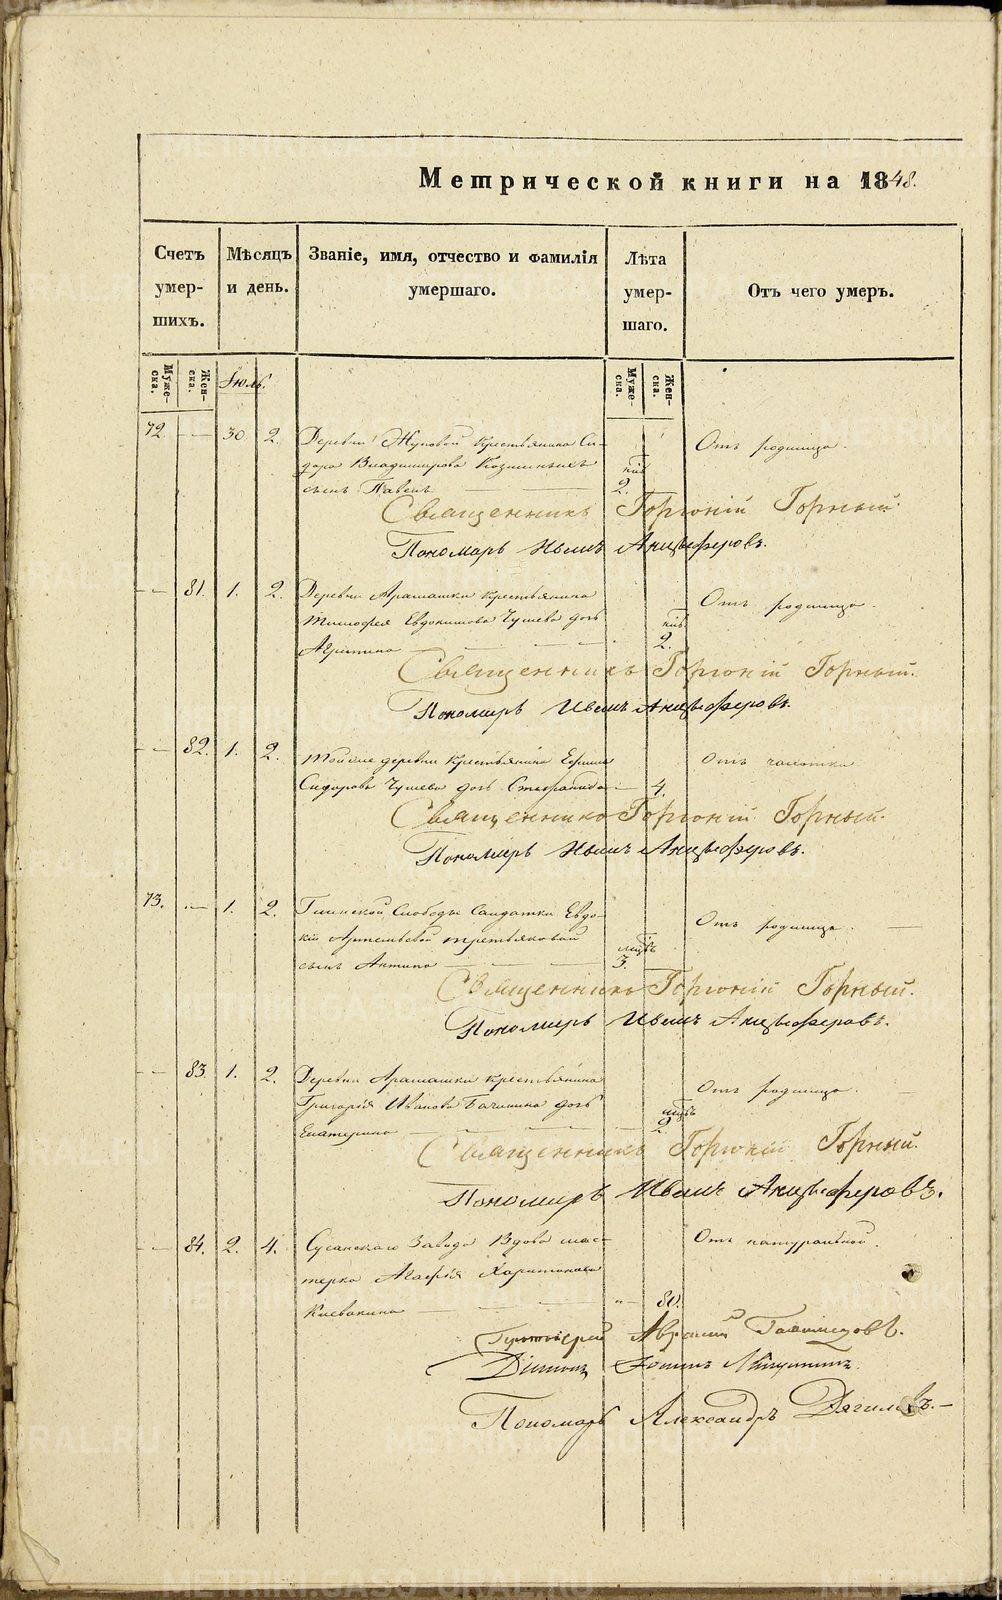 Метрической книги на 1848.
Счетъ умер- шихъ.
Мѣсяцъ и день.
Званіе, имя, отчество и фамилія умершаго.
Лѣта умер- шаго.
Отъ чего умеръ.
Муже- ска. Жен- ска. Іюль. Муже- ска. Жен- ска.
72. — 30 2. Деревни крестьянина Си-
дора Владимирова Отъ родимца.
сынъ Павелъ 2.
Священникъ Горгоній Горный.
Пономарь Иванъ Анцыферовъ.
— 81. 1. 2. Деревни Арамашки крестьянина Отъ родимца.
Тимофея Евдокимова Чушева дочь
2.
Священникъ Горгоній Горный.
Пономарь Иванъ Анцыферовъ.
— 82. 1. 2. Той же деревни крестьянина Отъ чахотки
Сидорова Чушева дочь Стефанида 4.
Священникъ Горгоній Горный.
Пономарь Иванъ Анцыферовъ.
73. — 1. 2. Глинской Слободы Солдатки Евдо-
кіи Артемьевой Третьяковой Отъ родимца.
сынъ Антипа 3.
Священникъ Горгоній Горный.
Пономарь Иванъ Анцыферовъ.
— 83. 1. 2. Деревни Арамашки крестьянина Отъ родимца.
Григорія Иванова дочь
Екатерина 2
Священникъ Горгоній Горный.
Пономарь Иванъ Анцыферовъ.
— 84. 2. 4. Сусанскаго Завода Вдова мас- Отъ натуральной.
терка Агафія Харитонова
80.
Протоіерей
Діаконъ
Пономарь Александръ Дягилевъ.